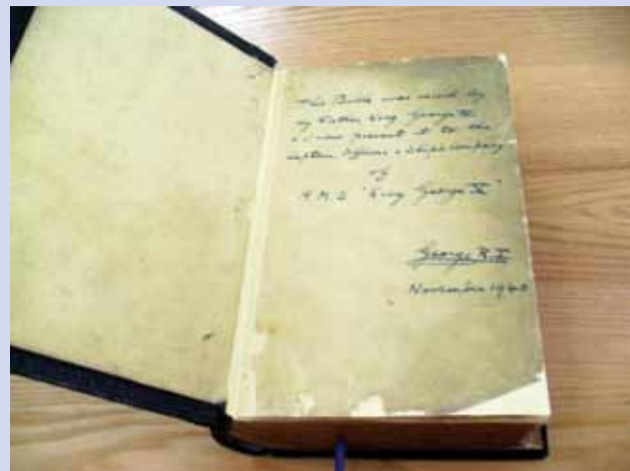 This Bible was used by
my Father King George V.
& I now present it to the
Captain, Officers & Ship's Company
of
H.M.S "King George V"
George R.I.
November 1940